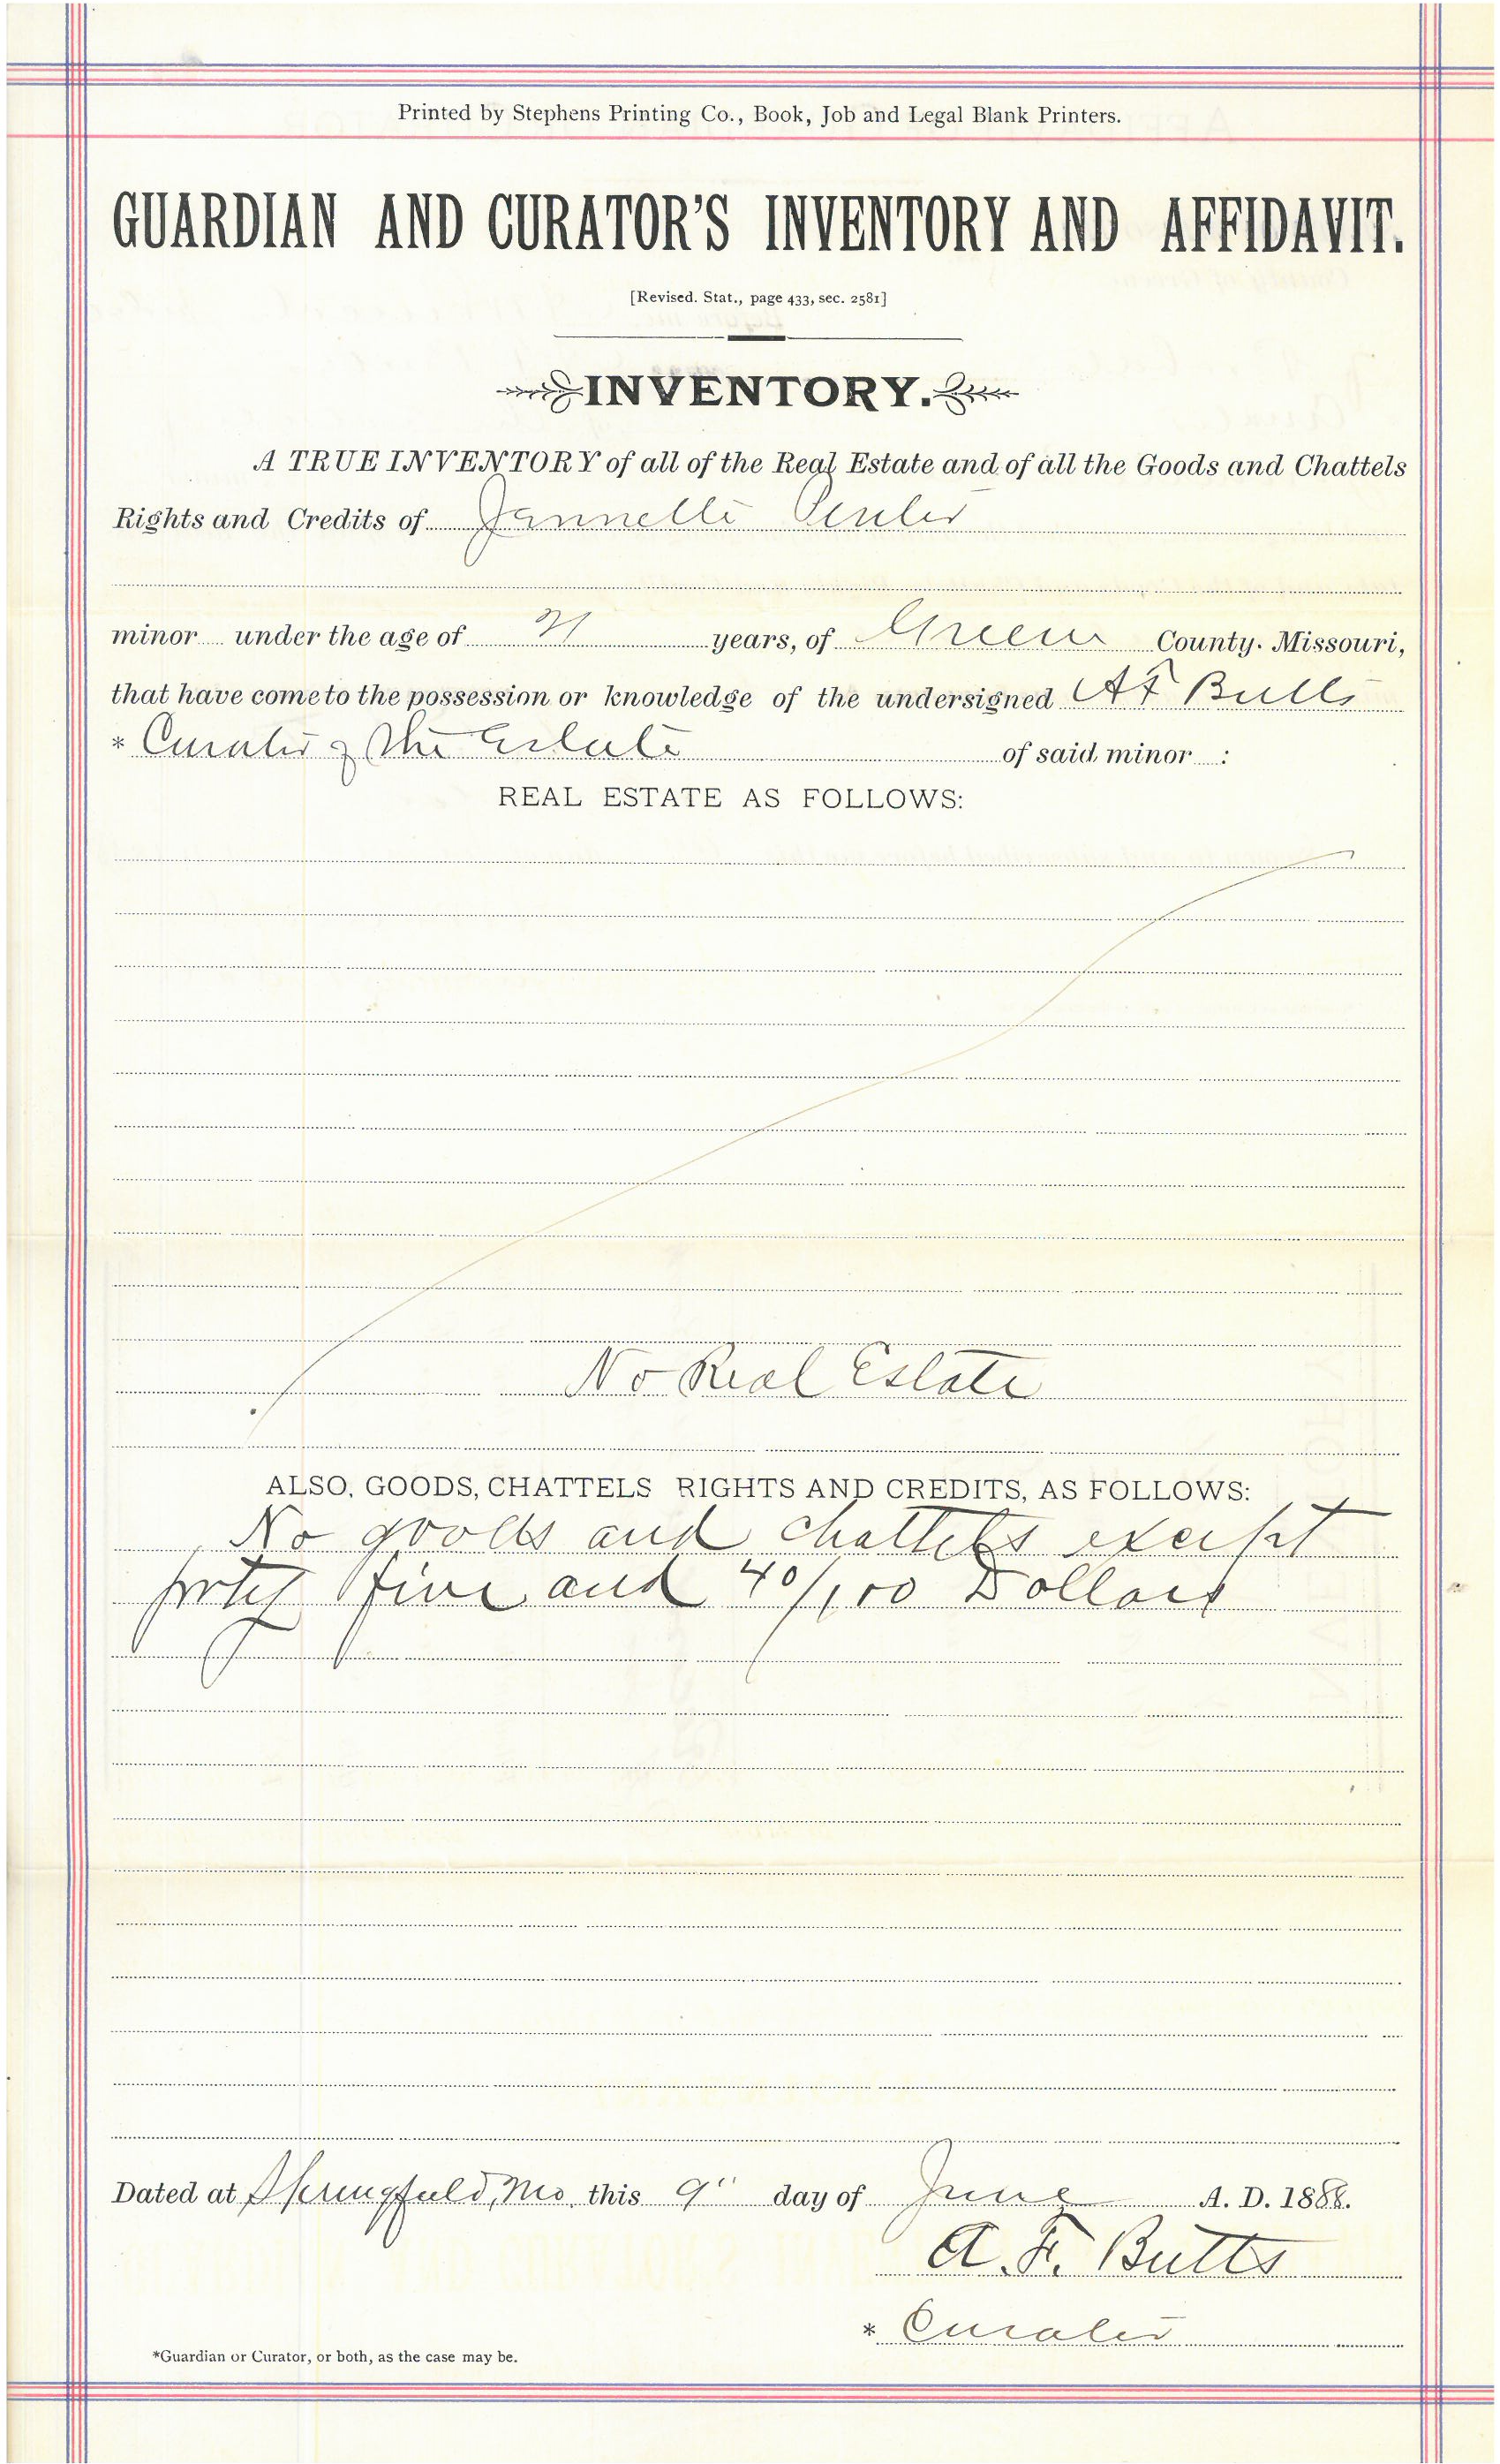 Printed by Stephens Printing Co., Book, Job and Legal Blank Printers.
GUARDIAN AND CURATOR'S INVENTORY AND AFFIDAVIT.
[Revised. Stat., page 433, sec. 2581]
INVENTORY.
A TRUE INVENTORY of all of the Real Estate and of all the Goods and Chattels
Rights and Credits of Jannette
minor under the age of 21 years, of Greene County. Missouri,
that have come to the possession or knowledge of the undersigned A F Butts
* Curator of the Estate of said minor :
REAL ESTATE AS FOLLOWS:
No Real Estate
ALSO, GOODS, CHATTELS RIGHTS AND CREDITS, AS FOLLOWS:
No goods and chattels except
forty five and 40/100 Dollars
Dated at Springfield, Mo. this 9" day of June A. D. 1888.
A. F. Butts
* Curator
*Guardian or Curator, or both, as the case may be.